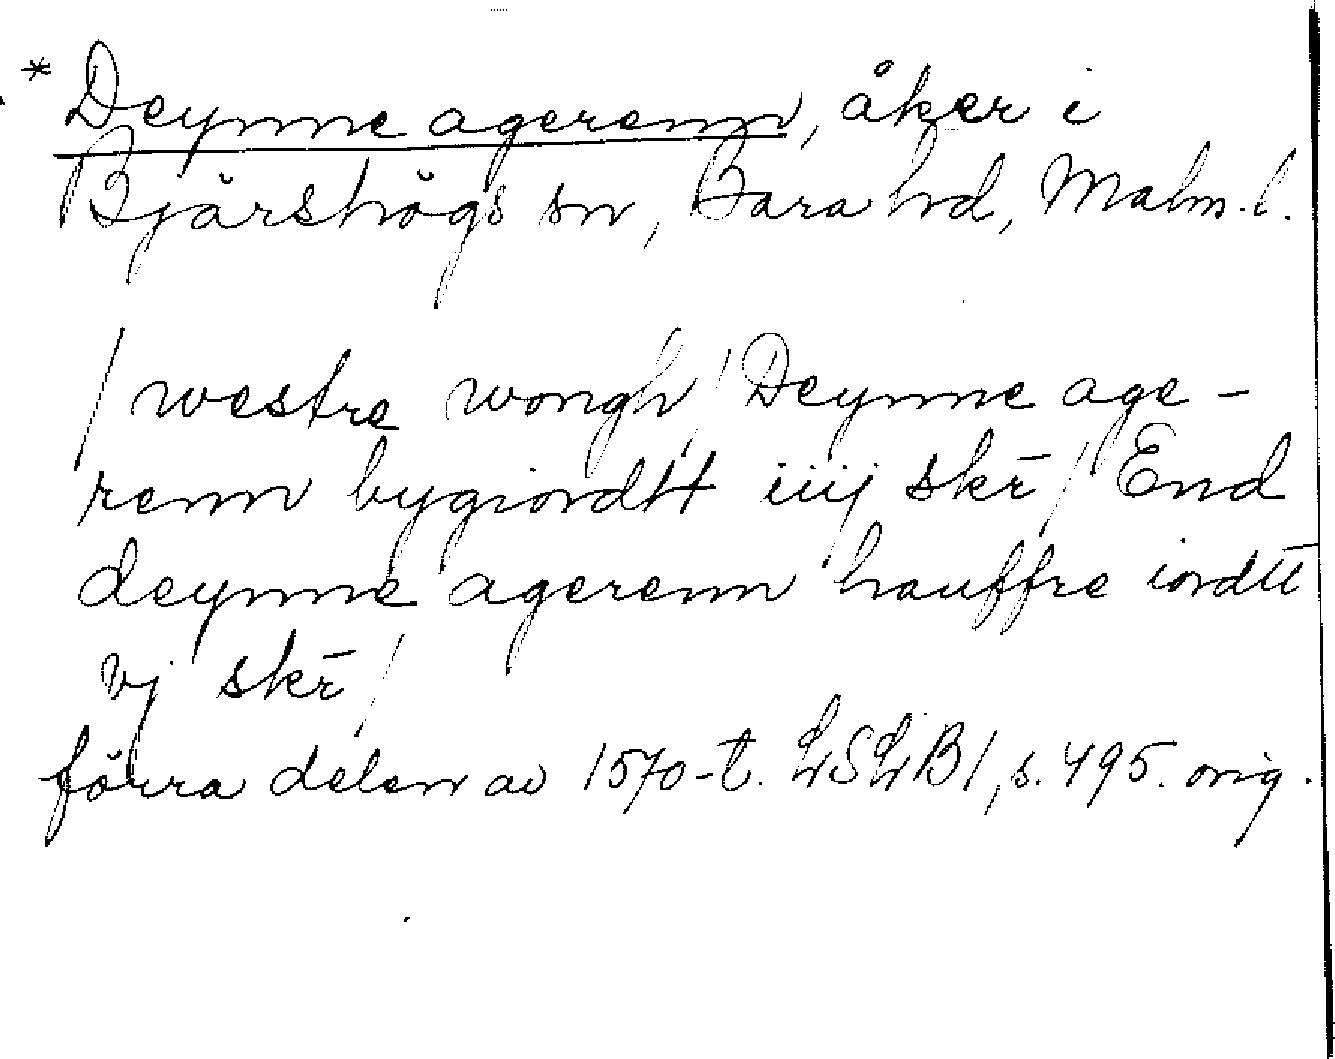 * Deynne agerenn, åker i
Bjärshögs sn, Bara hd, Malm. l.
/ westre wongh / Deynne age-
renn bygiordtt iiij skr̄ / End
deynne agerenn hauffre iordtt
vj skr̄ /
förra delen av 1570-t. LSLB I, s. 495. orig.